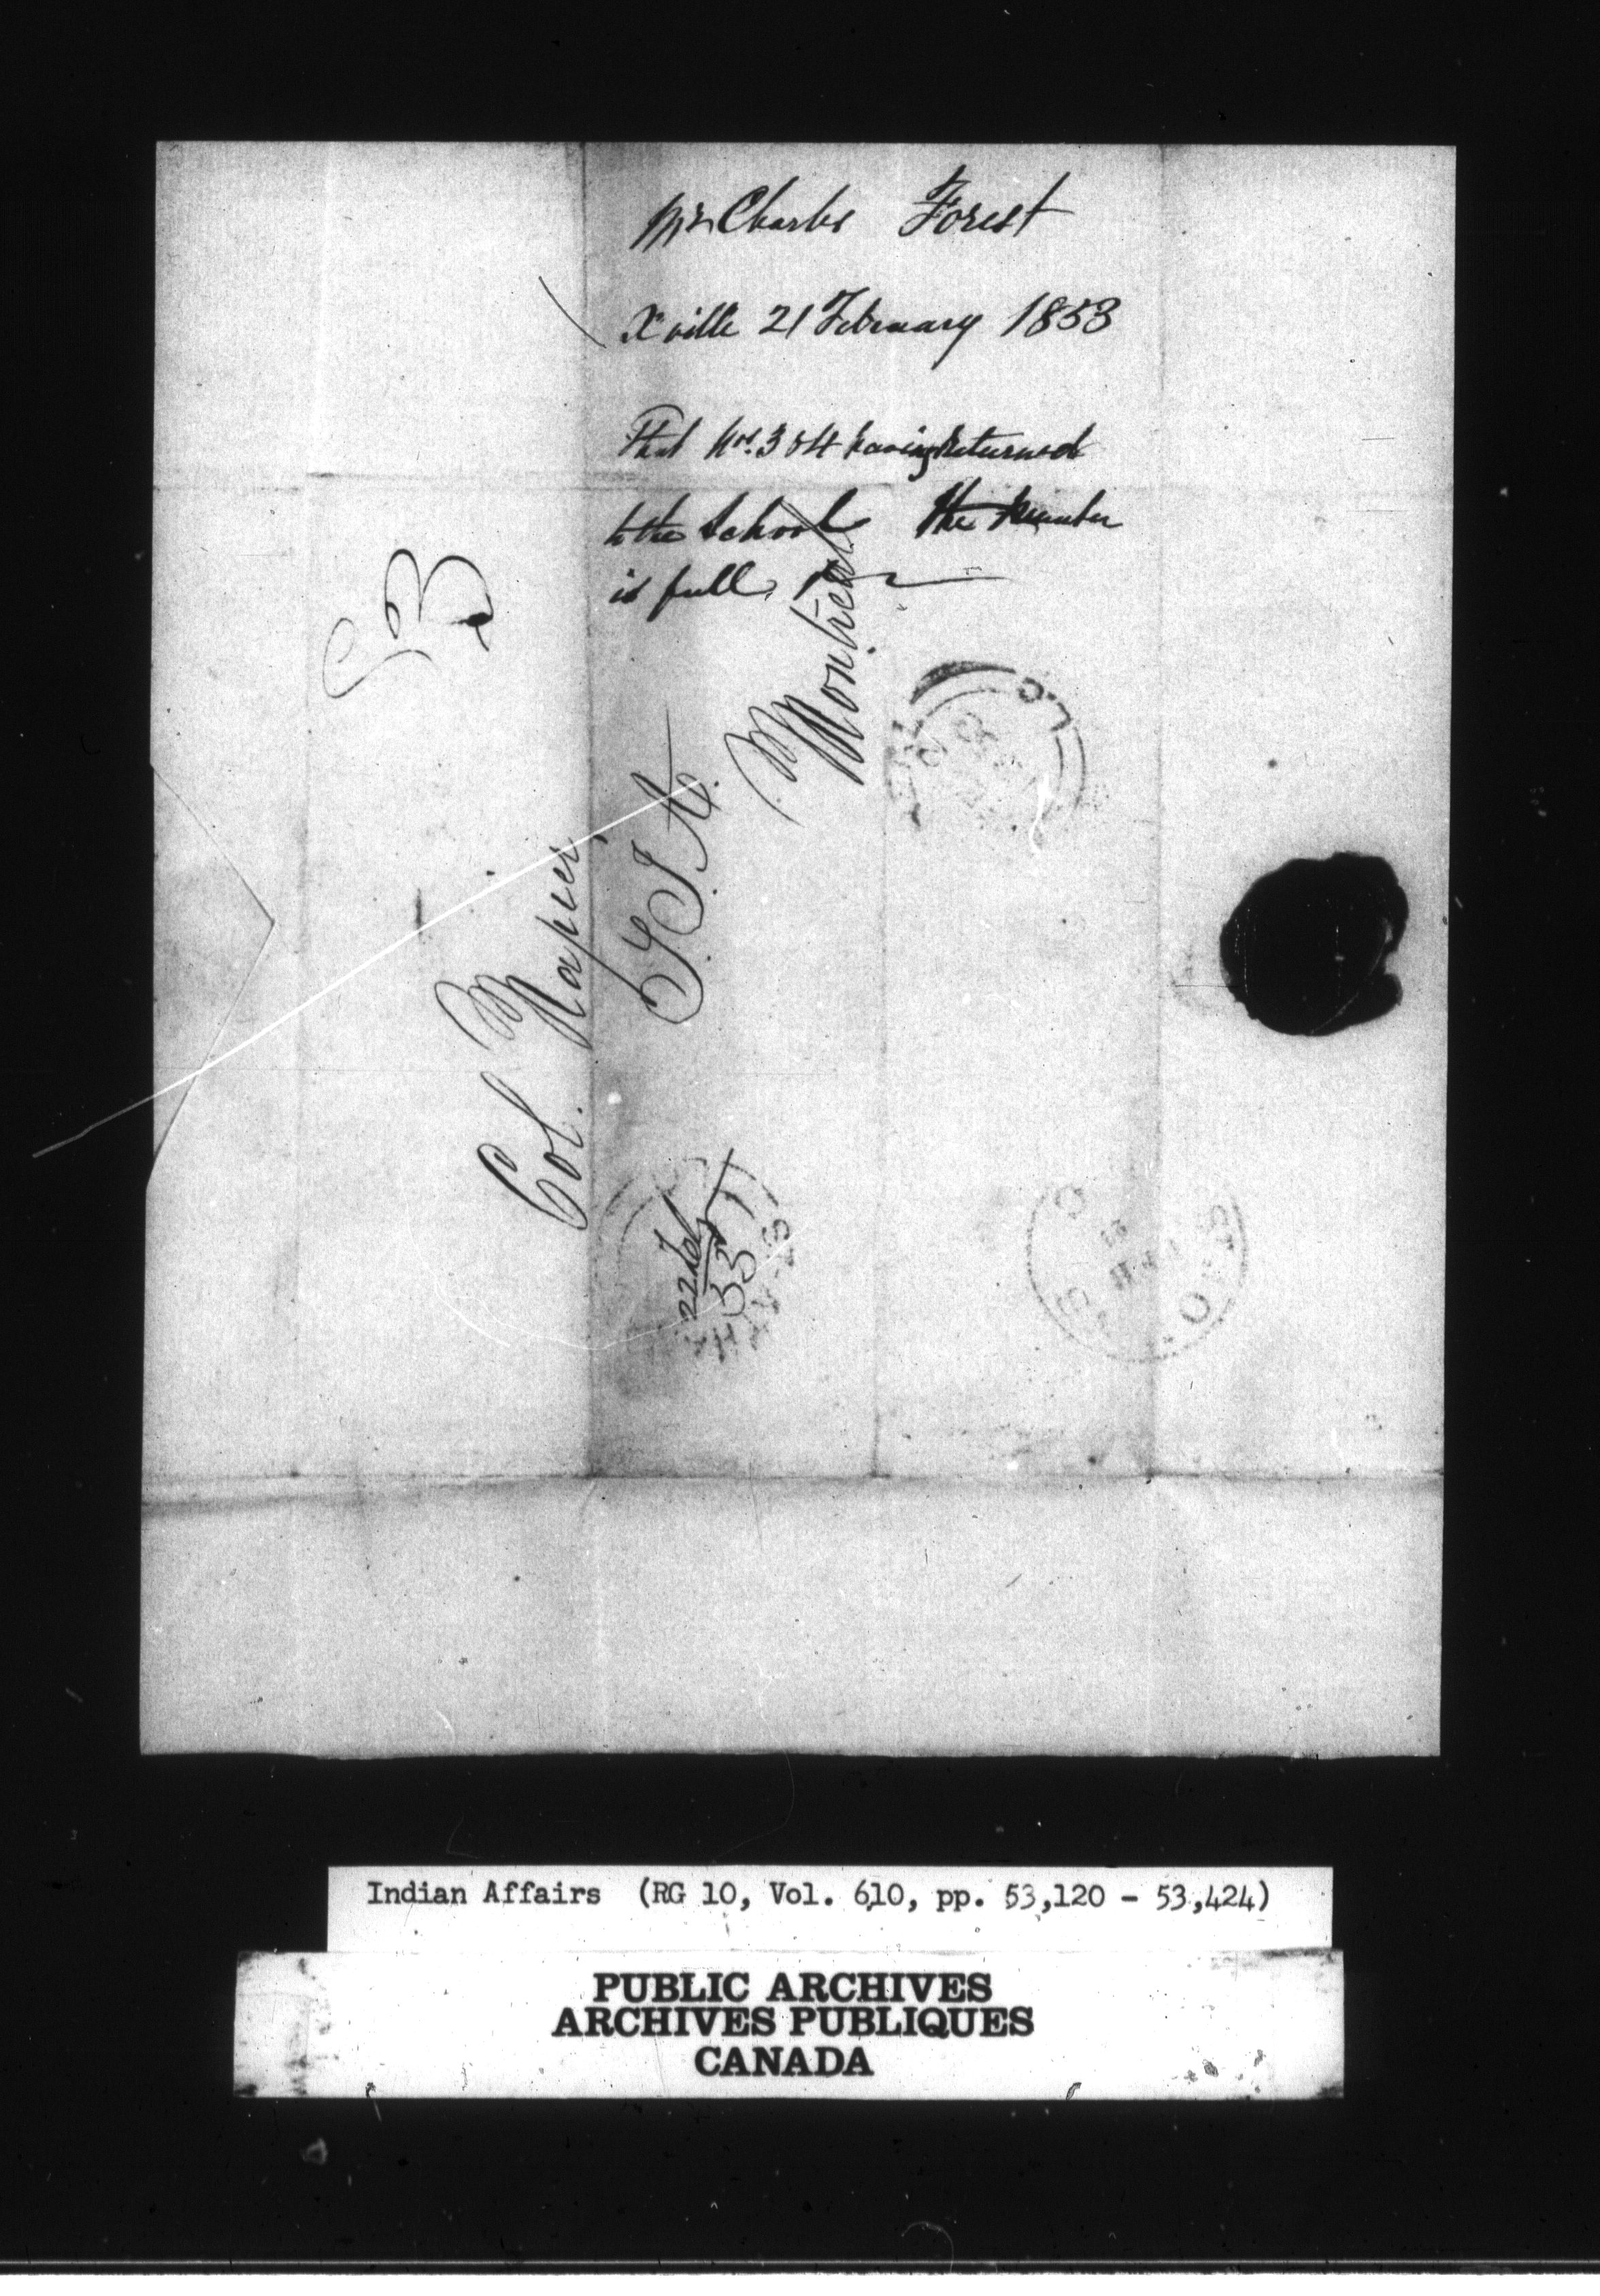 Mr Charles Forest
Xville 21 February 1853
That Nos. 3 & 4 having returned
to the School the Number
is full.
Col. Napier,
S.I.A.
Montreal
22 Feb
53
L.C
Indian Affairs (RG 10, Vol. 610, pp. 53,120 - 53,424)
PUBLIC ARCHIVES
ARCHIVES PUBLIQUES
CANADA